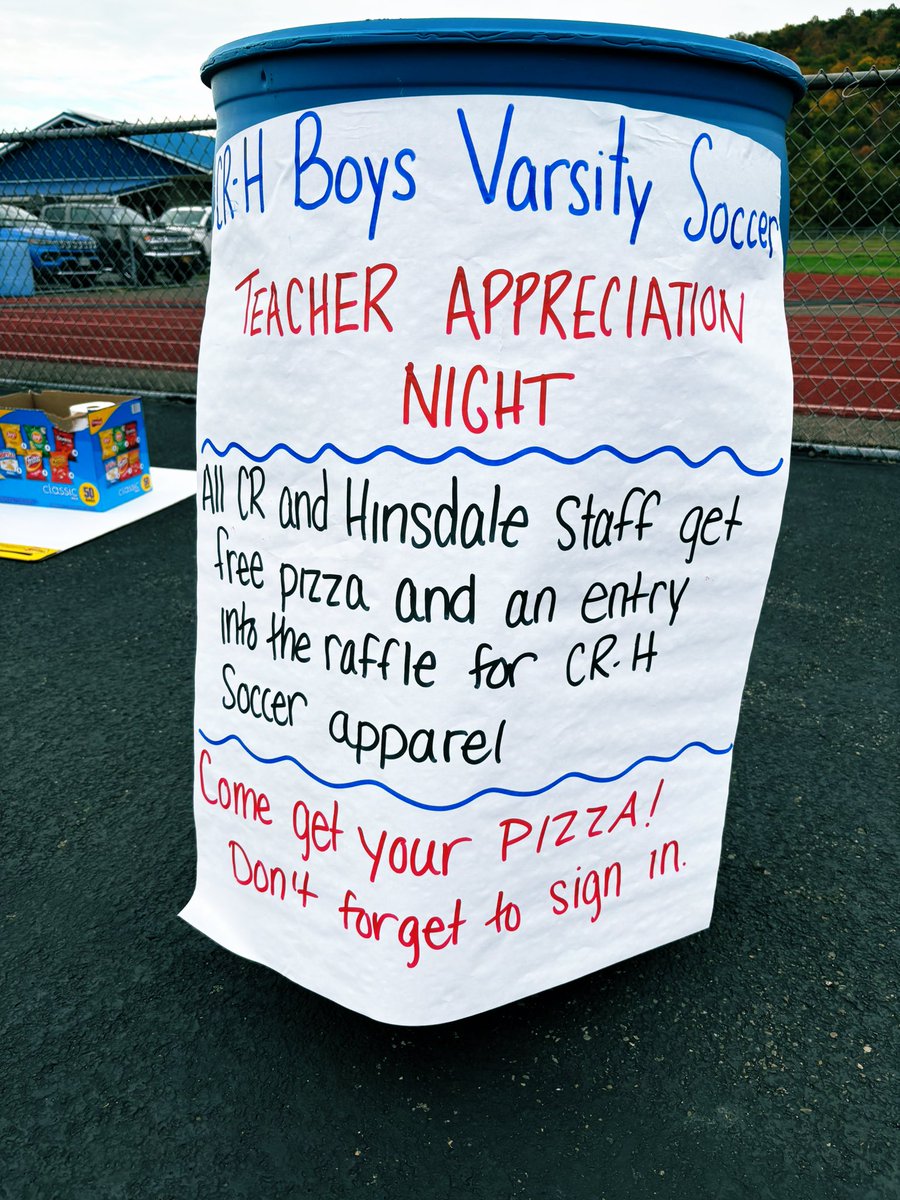 CR-H Boys Varsity Soccer
TEACHER APPRECIATION
NIGHT
All CR and Hinsdale Staff get
free pizza and an entry
into the raffle for CR-H
Soccer apparel
Come get your PIZZA!
Don't forget to sign in.
classic
50
classic